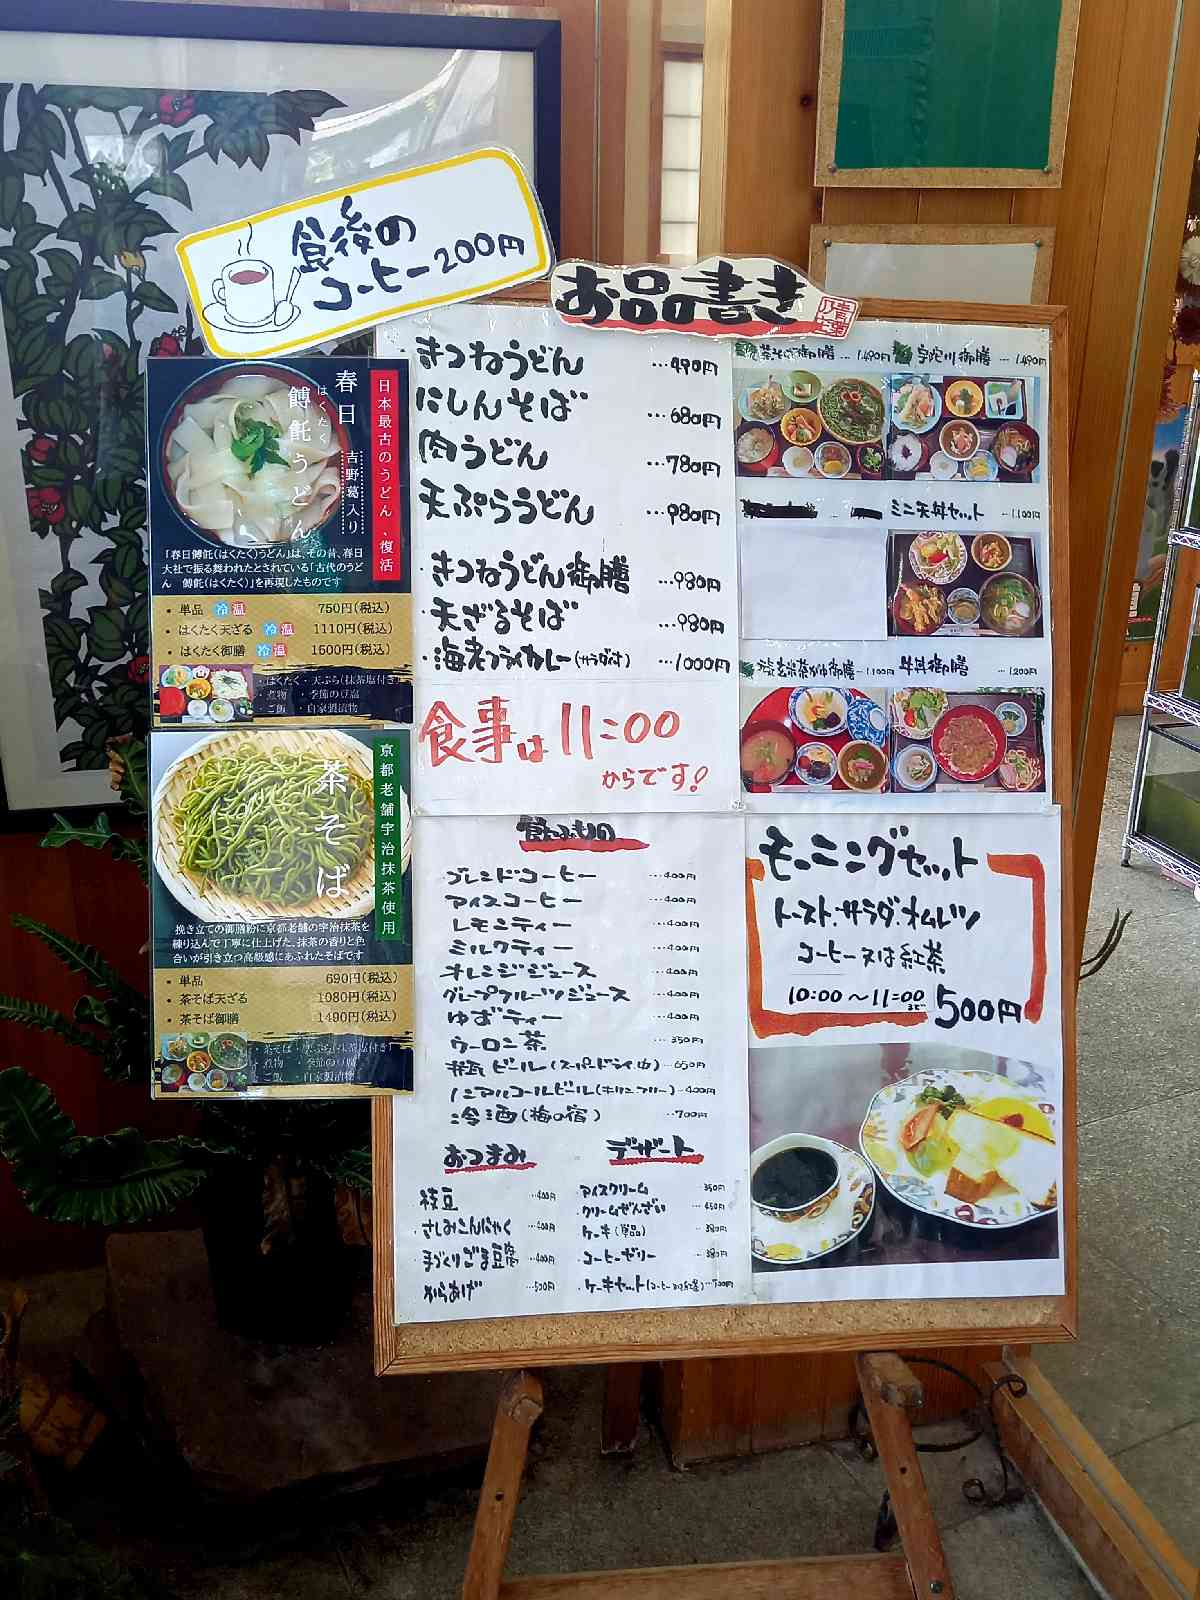 食後の
コーヒー200円
お品の書き
日本最古のうどん、復活
春日
はくたく
餺飥うどん
吉野葛入り
「春日餺飥(はくたく)うどん」は、その昔、春日
大社で振る舞われたとされている「古代のうど
ん 餺飥(はくたく)」を再現したものです
・単品 冷 温 750円(税込)
・はくたく天ざる 冷 温 1110円(税込)
・はくたく御膳 冷 温 1500円(税込)
・はくたく ・天ぷら(抹茶塩付き)
・煮物 ・季節の豆腐
・ご飯 ・自家製漬物
京都老舗宇治抹茶使用
茶そば
挽き立ての御膳粉に京都老舗の宇治抹茶を
練り込んで丁寧に仕上げた、抹茶の香りと色
合いが引き立つ高級感にあふれたそばです
・単品 690円(税込)
・茶そば天ざる 1080円(税込)
・茶そば御膳 1490円(税込)
・茶そば ・天ぷら(抹茶塩付き)
・煮物 ・季節の豆腐
・ご飯 ・自家製漬物
・きつねうどん …490円
・にしんそば …680円
・肉うどん …780円
・天ぷらうどん …980円
・きつねうどん御膳 …980円
・天ざるそば …980円
・海老フライカレー(サラダ付) …1000円
食事は11:00
からです!
茶そば御膳 …1,490円
宇陀川御膳 …1,490円
ミニ天丼セット …1,100円
玄米茶がゆ御膳 …1,100円
牛丼御膳 …1,200円
飲みもの
・ブレンドコーヒー …400円
・アイスコーヒー …400円
・レモンティー …400円
・ミルクティー …400円
・オレンジジュース …400円
・グレープフルーツジュース …400円
・ゆずティー …400円
・ウーロン茶 …350円
・瓶ビール(スーパードライ中) …650円
・ノンアルコールビール(キリンフリー) …400円
・冷酒(梅の宿) …700円
おつまみ
・枝豆 …400円
・さしみこんにゃく …400円
・手づくりごま豆腐 …400円
・からあげ …500円
デザート
・アイスクリーム 350円
・クリームぜんざい …450円
・ケーキ(単品) …380円
・コーヒーゼリー …380円
・ケーキセット(コーヒー又は紅茶) …700円
モーニングセット
トースト.サラダ.オムレツ
コーヒー又は紅茶
10:00〜11:00まで
500円